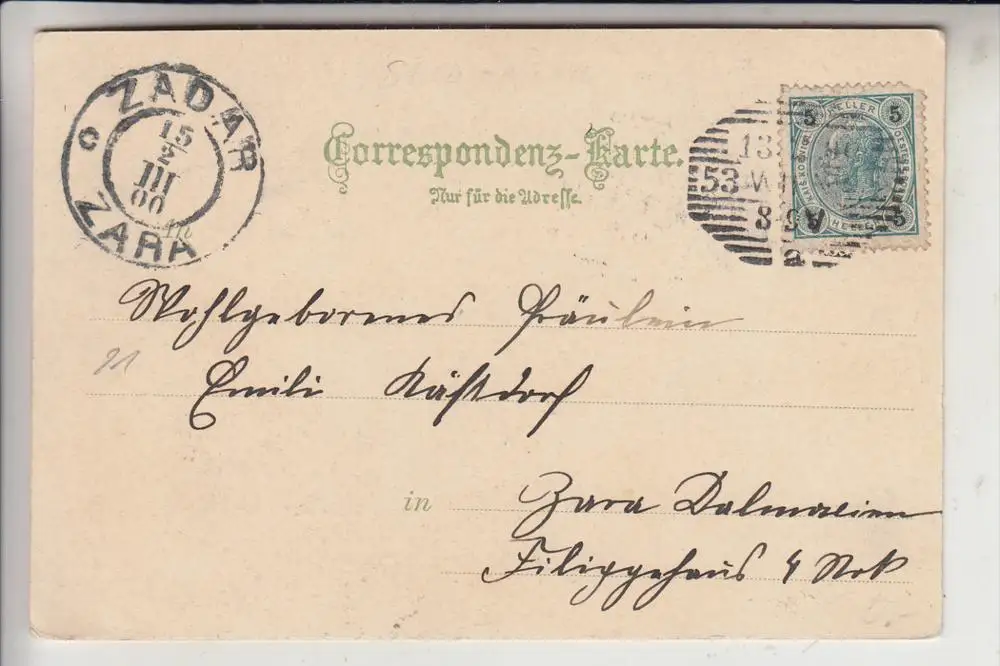 ZADAR
c
15
2
III
00
ZARA
Correspondenz-Karte.
Nur für die Adresse.
5 HELLER 5
13
53
8
a
Wohlgeborenes Fräulein
91
Emili Kästdorf
in Zara Dalmazien
Filippehaus 4 Stok